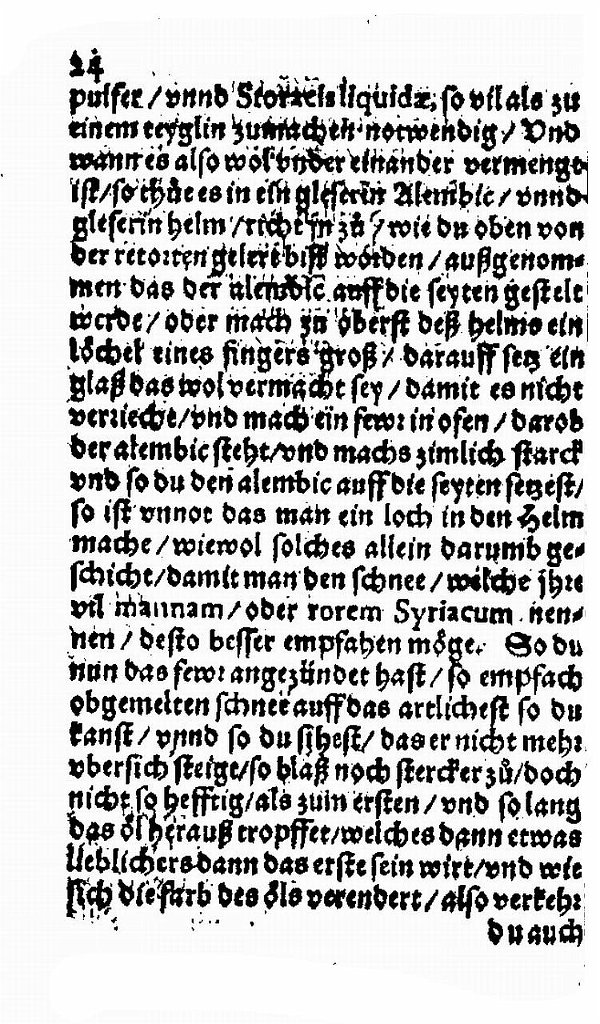 24
pulfer / vnnd Storacis liquidæ, so vil als zu
einem teyglin zumachen notwendig / Vnd
wann es also wol vnder einander vermengt
ist / so thůe es in ein gleserin Alembic / vnnd
gleserin helm / richt jn zů / wie du oben von
der retorten gelert bist worden / außgenom⸗
men das der alembic auff die seyten gestelt
werde / oder mach zu oberst deß helms ein
löchel eines fingers groß / darauff setz ein
glaß das wol vermacht sey / damit es nicht
verrieche / vnd mach ein fewr in ofen / darob
der alembic steht / vnd machs zimlich starck
vnd so du den alembic auff die seyten setzest /
so ist vnnot das man ein loch in den Helm
mache / wiewol solches allein darumb ge⸗
schicht / damit man den schnee / wélche jhre
vil mannam / oder rorem Syriacum nen⸗
nen / desto besser empfahen möge. So du
nun das fewr angezündet hast / so empfach
obgemelten schnee auff das artlichest so du
kanst / vnnd so du sihest / das er nicht mehr
vbersich steigt / so blaß noch stercker zů / doch
nicht so hefftig / als zum ersten / vnd so lang
das öl herauß tropffet / welches dann etwas
lieblichers dann das erste sein wirt / vnd wie
sich die farb des öls verendert / also verkehr
du auch